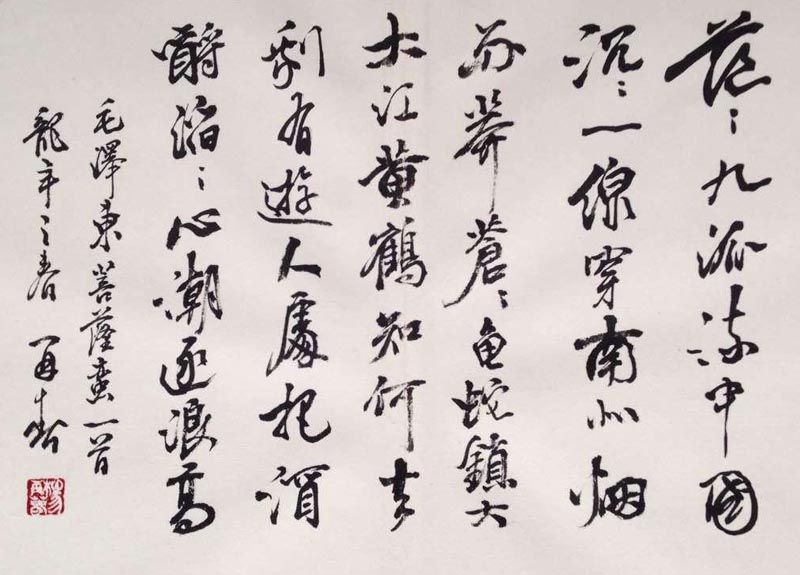 茫〻九派流中國
沉〻一線穿南北烟
雨莽蒼〻龟蛇鎖大
大江黃鶴知何去
剩有遊人處把酒
酹滔〻心潮逐浪高
毛澤東菩薩蠻一首
龍年之春